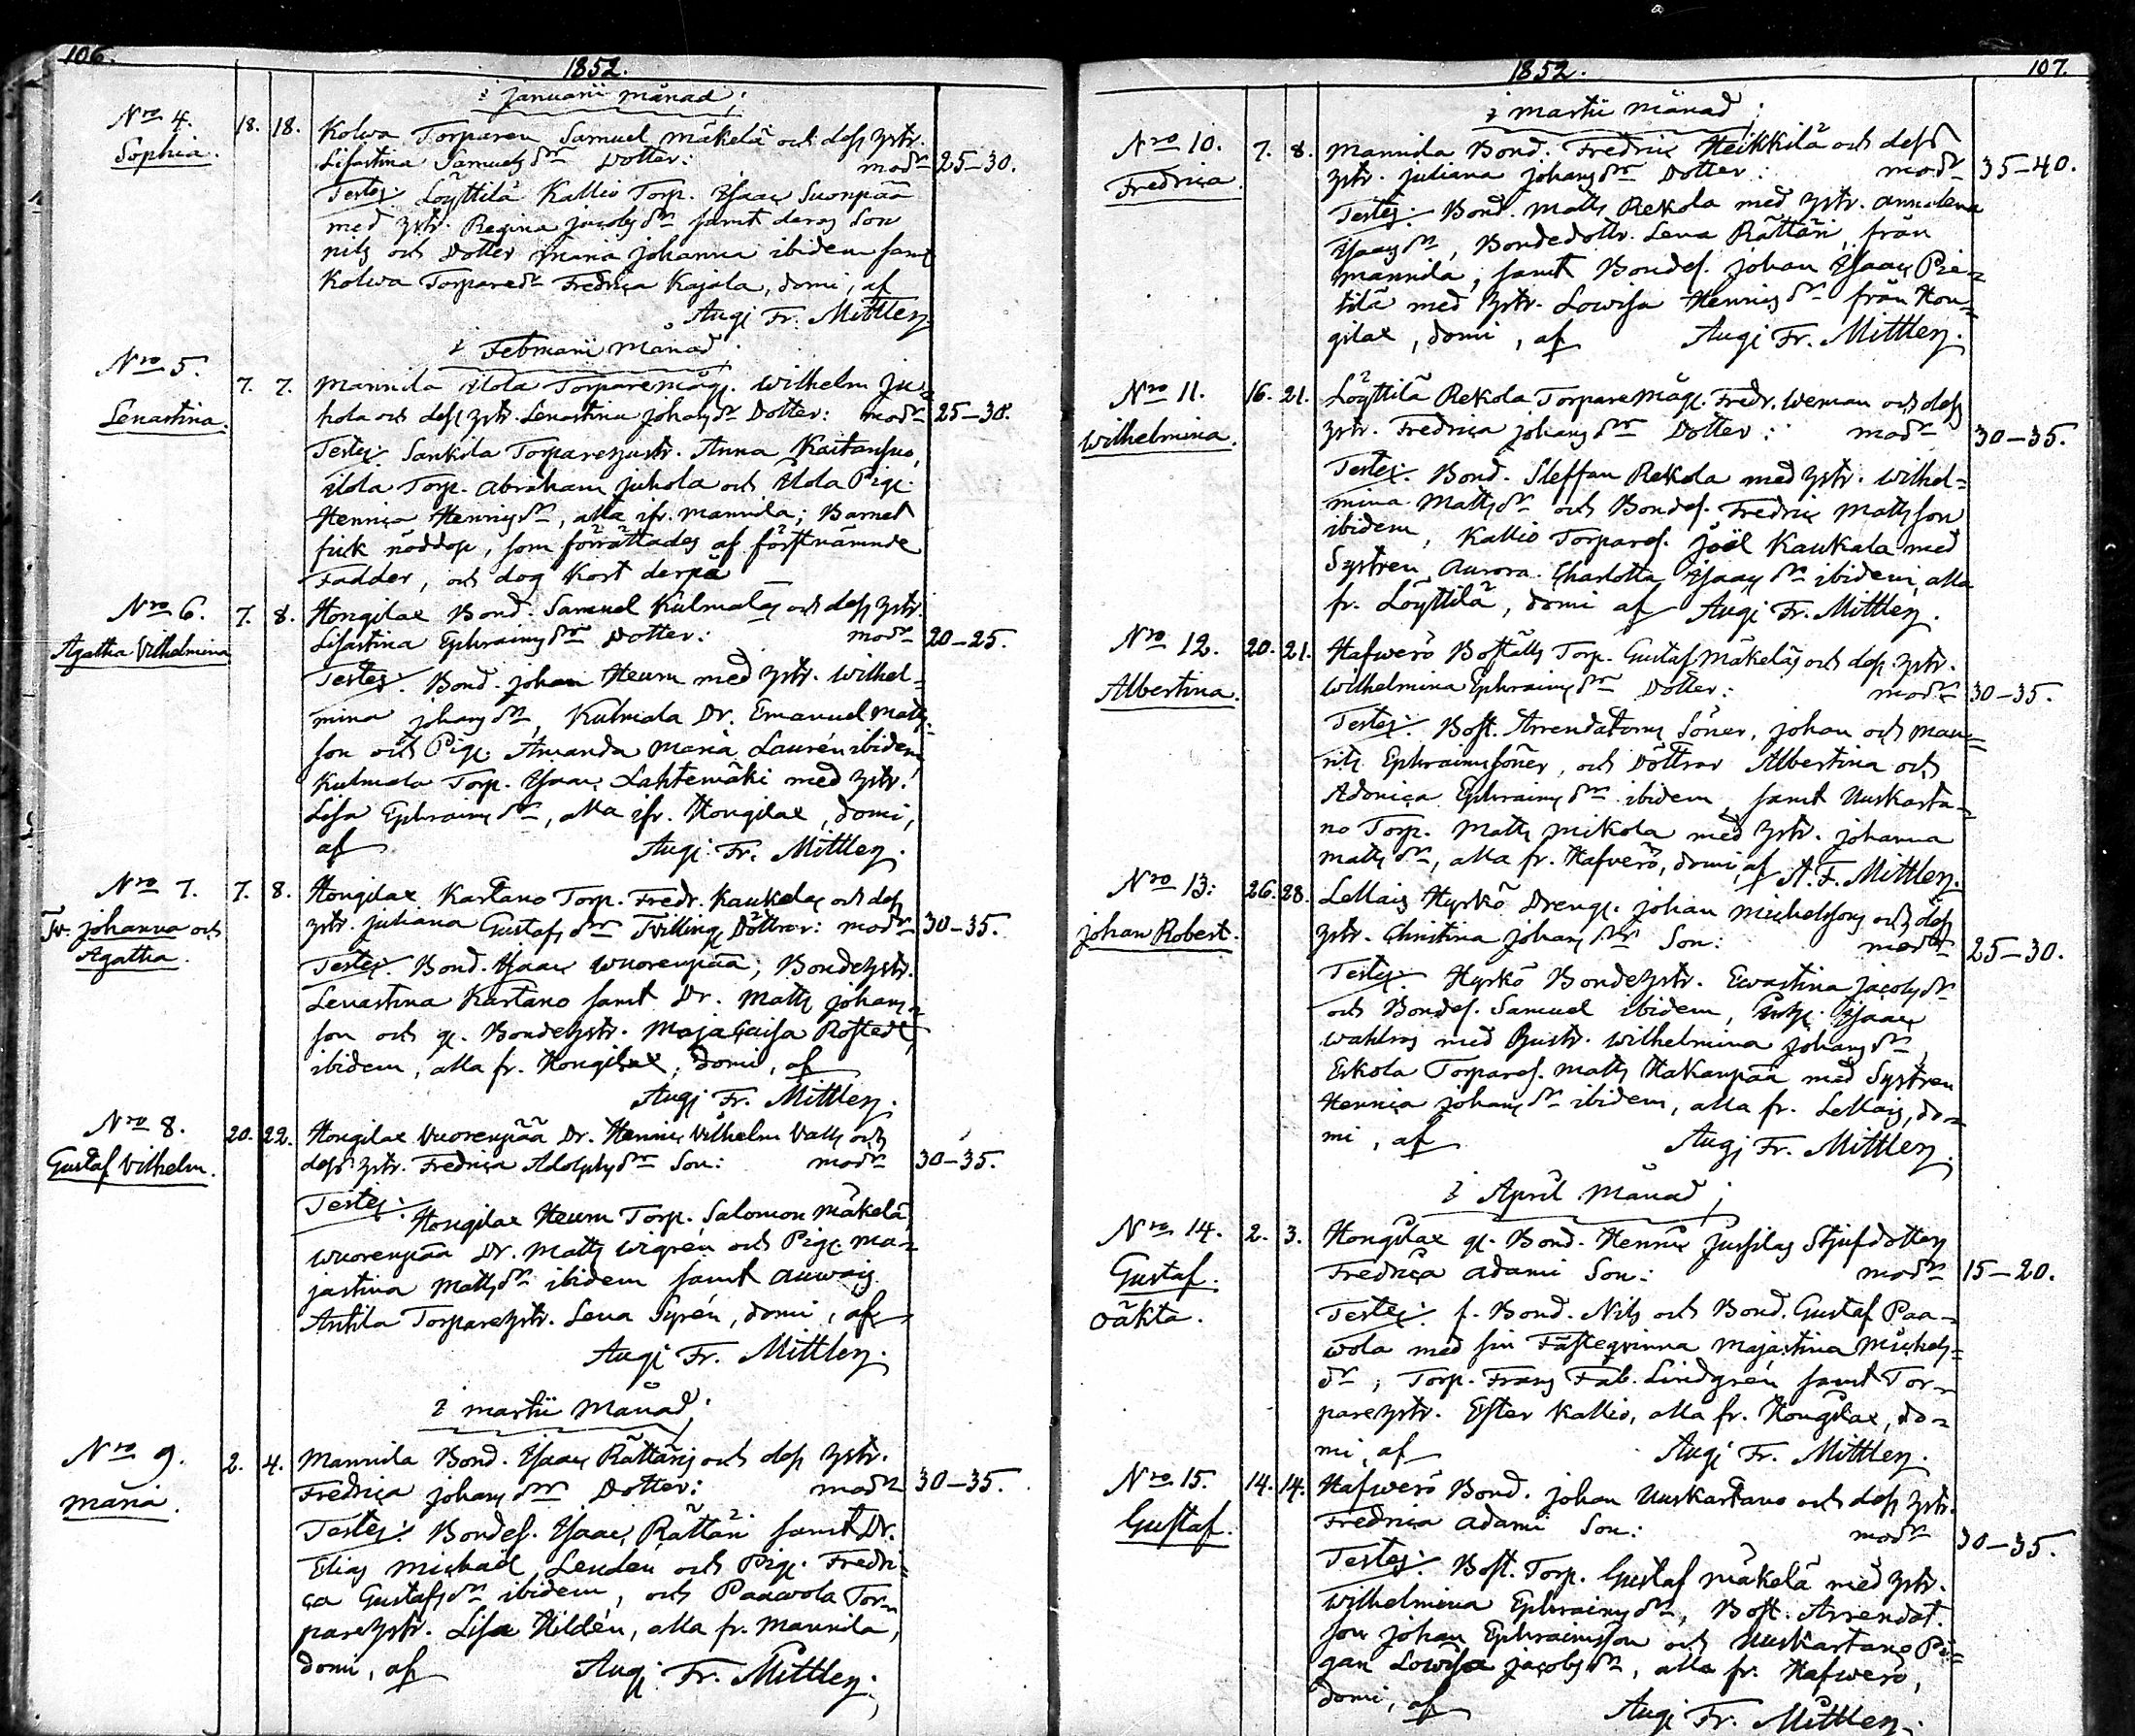 106.
1852.
i Januarii månad;
Nro 4. 18. 18. Kolwa Torparen Samuel Mäkelä och dess hstr.
Sophia. Lisastina Samuelsdr Dotter: modr 25–30.
Testes: Löyttilä Kallio Torp. Isaac Suonpää
med hstr. Regina Jacobsdr samt deras Son
Nils och Dotter Maria Johanna ibidem samt
Kolwa Torparedr Fredrica Kajala, domi, af
Aug. Fr. Mittler.
i Februarii Månad;
Nro 5. 7. 7. Mannila Ilola Torparemåg. Wilhelm Ju-
Lenastina. hola och dess hstr. Lenastina Johansdr Dotter: modr 25–30.
Testes: Sankila Torparehustr. Anna Kartansuo,
Ilola Torp. Abraham Juhola och Ilola Pig.
Henrica Henricsdr, alla ifr. Mannila; Barnet
fick nöddop, som förrättades af förstnämnde
Fadder, och dog kort derpå
Nro 6. 7. 8. Hongilax Bond. Samuel Kulmalas och dess hstr.
Agatha Vilhelmina Lisastina Ephraimsdr Dotter: modr 20–25.
Testes: Bond. Johan Heurn med hstr. Wilhel-
mina Johansdr, Kulmala Dr. Emanuel Mats-
son och Pig. Amanda Maria Laurén ibidem
Kulmala Torp. Isaac Lahtemäki med hstr.
Lisa Ephraimsdr, alla ifr. Hongilax, domi,
af Aug. Fr. Mittler.
Nro 7. 7. 8. Hongilax Kartano Torp. Fredr. Kaukalas och dess
Tv. Johanna och hstr. Juliana Gustafsdr Tvilling Döttrar: modr 30–35.
Agatha. Testes: Bond. Isaac Wuorenpää, Bondehstr.
Lenastina Kartano samt Dr. Matts Johans-
son och g. Bondehstr. Maja Caisa Rostedt
ibidem, alla fr. Hongilax, domi, af
Aug. Fr. Mittler.
Nro 8. 20. 22. Hongilax Vuorenpää Dr. Henric Vilhelm Valls och
Gustaf Vilhelm. dess hstr. Fredrica Adolphsdr Son: modr 30–35.
Testes: Hongilax Heurn Torp. Salomon Mäkelä,
Wuorenpää Dr. Matts Wigrén och Pig. Ma-
jastina Mattsdr ibidem samt Auwais
Anttila Torparehstr. Lena Syrén, domi, af
Aug. Fr. Mittler.
i Martii Månad;
Nro 9. 2. 4. Mannila Bond. Isaac Rättäris och dess hstr.
Maria. Fredrica Johansdr Dotter: modr 30–35.
Testes: Bondes. Isaac Rättäri samt Dr.
Elias Michaël Lendén och Pig. Fredri-
ca Gustafsdr ibidem, och Paawola Tor-
parehstr. Lisa Hildén, alla fr. Mannila,
domi, af Aug. Fr. Mittler.
1852. 107.
i Martii Månad;
Nro 10. 7. 8. Mannila Bond. Fredric Heikkilä och dess
Fredrica. hstr. Juliana Johansdr Dotter: modr 35–40.
Testes: Bond. Matts Rekola med hstr. Annalena
Isaacsdr, Bondedottr. Lena Rättäri, från
Mannila, samt Bondes. Johan Isaac Pie-
tilä med hstr. Lowisa Henricsdr från Hon-
gilax, domi, af Aug. Fr. Mittler.
Nro 11. 16. 21. Löyttilä Rekola Torparemåg. Fredr. Weman och dess
Wilhelmina. hstr. Fredrica Johansdr Dotter: modr 30–35.
Testes: Bond. Steffan Rekola med hstr. Wilhel-
mina Mattsdr och Bondes. Fredric Matsson
ibidem, Kallio Torpares. Joël Kaukala med
Systren Aurora Charlotta Isaacsdr ibidem, alla
fr. Löyttilä, domi af Aug. Fr. Mittler.
Nro 12. 20. 21. Hafwerö Boställs Torp. Gustaf Mäkeläs och dess hstr.
Albertina. Wilhelmina Ephraimsdr Dotter: modr 30–35.
Testes: Bost. Arrendatorns Söner, Johan och Mau-
ritz Ephraimssöner, och Döttrar Albertina och
Adonica Ephraimsdr ibidem, samt Uuskarta-
no Torp. Matts Mikola med hstr. Johanna
Mattsdr, alla fr. Hafverö, domi, af A. F. Mittler.
Nro 13: 26. 28. Lellais Hyrkö Dreng. Johan Michelssons och dess
Johan Robert. hstr. Christina Johansdr Son: modr 25–30.
Testes: Hyrkö Bondehstr. Ewastina Jacobsdr
och Bondes. Samuel ibidem, Isaac
Wahlros med hustr. Wilhelmina Johansdr,
Eskola Torpares. Matts Hakanpää med Systren
Henrica Johansdr ibidem, alla fr. Lellais, do-
mi, af Aug. Fr. Mittler.
i April Månad;
Nro 14. 2. 3. Hongilax g. Bond. Henric Jussilas Stjufdotters
Gustaf. Fredrica Adami Son: modr 15–20.
oäkta. Testes: f. Bond. Nils och Bond. Gustaf Paa-
wola med sin Fästeqvinna Majastina Michels-
dr, Torp. Frans Fab. Lindgrén samt Tor-
parehstr. Ester Kallio, alla fr. Hongilax, do-
mi, af Aug. Fr. Mittler.
Nro 15. 14. 14. Hafwerö Bond. Johan Uuskartano och dess hstr.
Gustaf. Fredrica Adami Son: modr 30–35.
Testes: Bost. Torp. Gustaf Mäkelä med hstr.
Wilhelmina Ephraimsdr, Bost. Arrendat.
son Johan Ephraimsson och Uuskartano Pi-
gan Lowisa Jacobsdr, alla fr. Hafwerö,
domi, af Aug. Fr. Mittler.